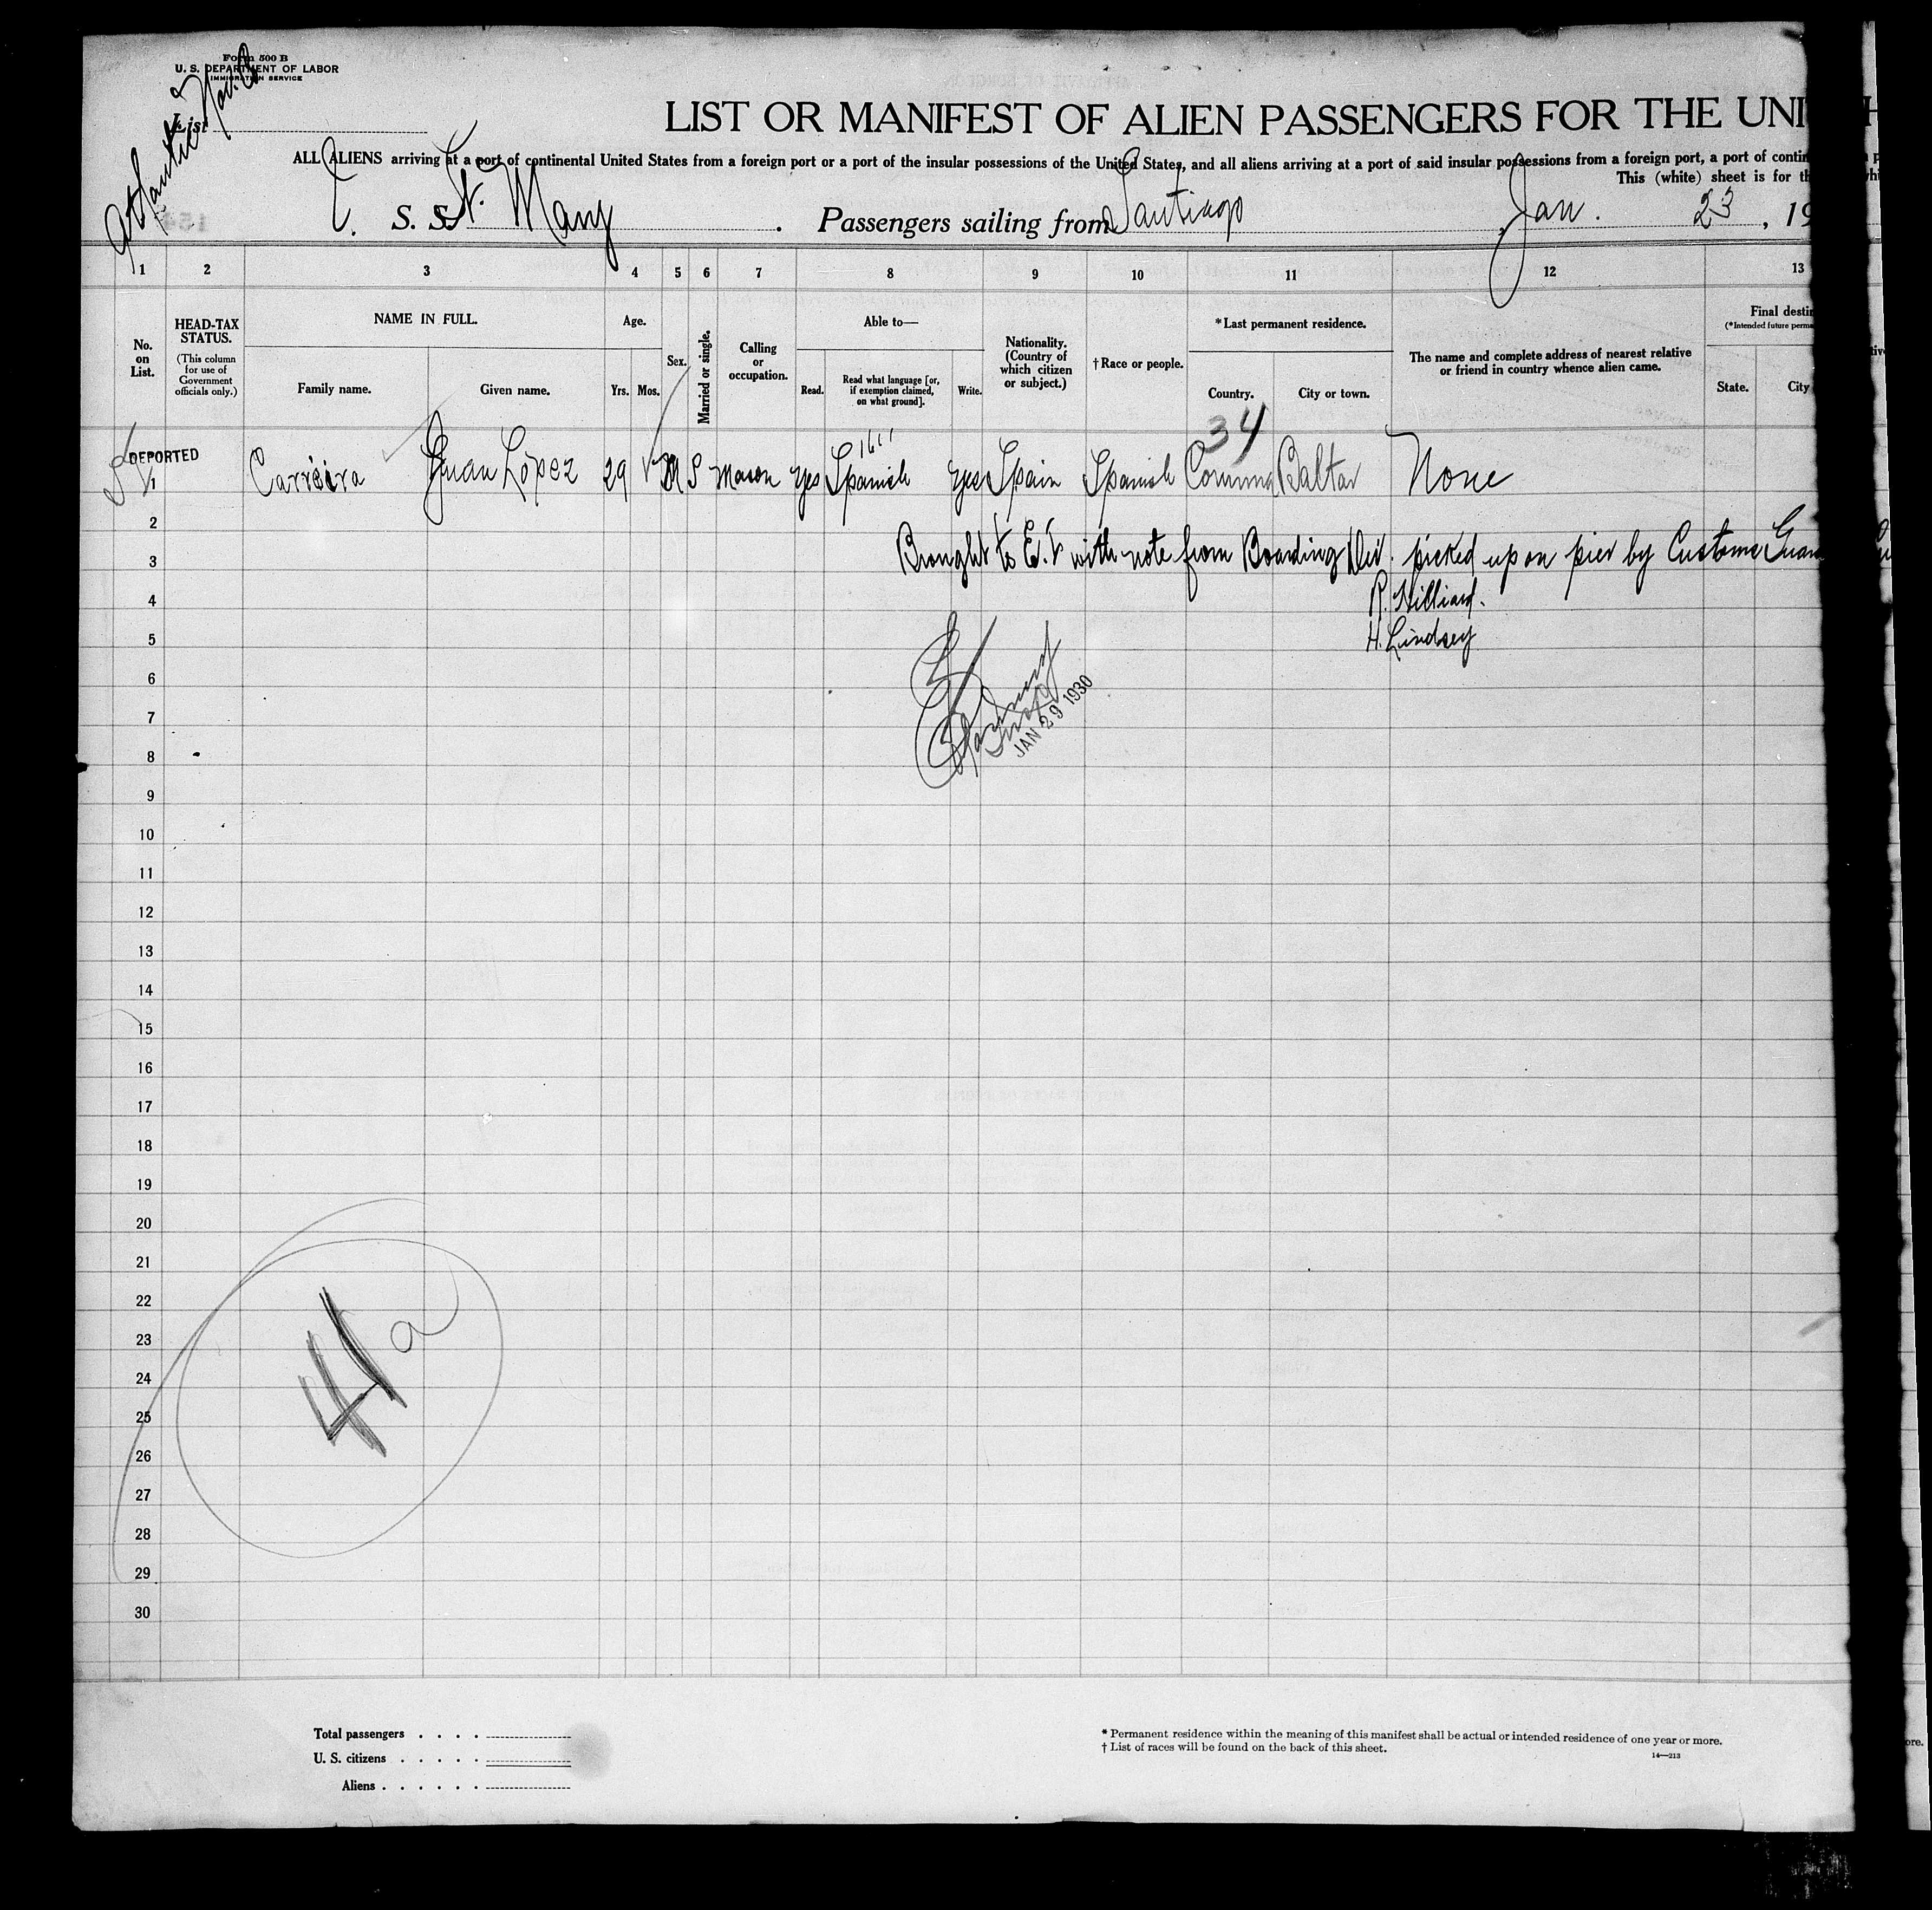 Form 500 B
U. S. DEPARTMENT OF LABOR
IMMIGRATION SERVICE
Atlantic
List
LIST OR MANIFEST OF ALIEN PASSENGERS FOR THE UNI
ALL ALIENS arriving at a port of continental United States from a foreign port or a port of the insular possessions of the United States, and all aliens arriving at a port of said insular possessions from a foreign port, a port of contin
This (white) sheet is for th
S. S. St. Mary Passengers sailing from Santiago, Jan. 23, 19
1 2 3 4 5 6 7 8 9 10 11 12 13
No. on List.
HEAD-TAX STATUS.
(This column for use of Government officials only.)
NAME IN FULL.
Family name. Given name.
Age.
Yrs. Mos.
Sex.
Married or single.
Calling or occupation.
Able to—
Read. Read what language [or, if exemption claimed, on what ground]. Write.
Nationality. (Country of which citizen or subject.)
†Race or people.
*Last permanent residence.
Country. City or town.
The name and complete address of nearest relative or friend in country whence alien came.
Final destin
(*Intended future perma
State. City
34
DEPORTED
1 Carreira Juan López 29 M S Mason yes Spanish yes Spain Spanish Coruna Baltar None
2
Brought to E.I. with note from Boarding Div. picked up on pier by Customs Guar
3
R. Hilliard.
4
H. Lindsey
5
6
JAN 29 1930
7
8
9
10
11
12
13
14
15
16
17
18
19
20
21
22
23
24
25
26
27
28
29
30
41a
Total passengers . . . .
U. S. citizens . . . . .
Aliens . . . . . .
* Permanent residence within the meaning of this manifest shall be actual or intended residence of one year or more.
† List of races will be found on the back of this sheet.
14—213
ore.